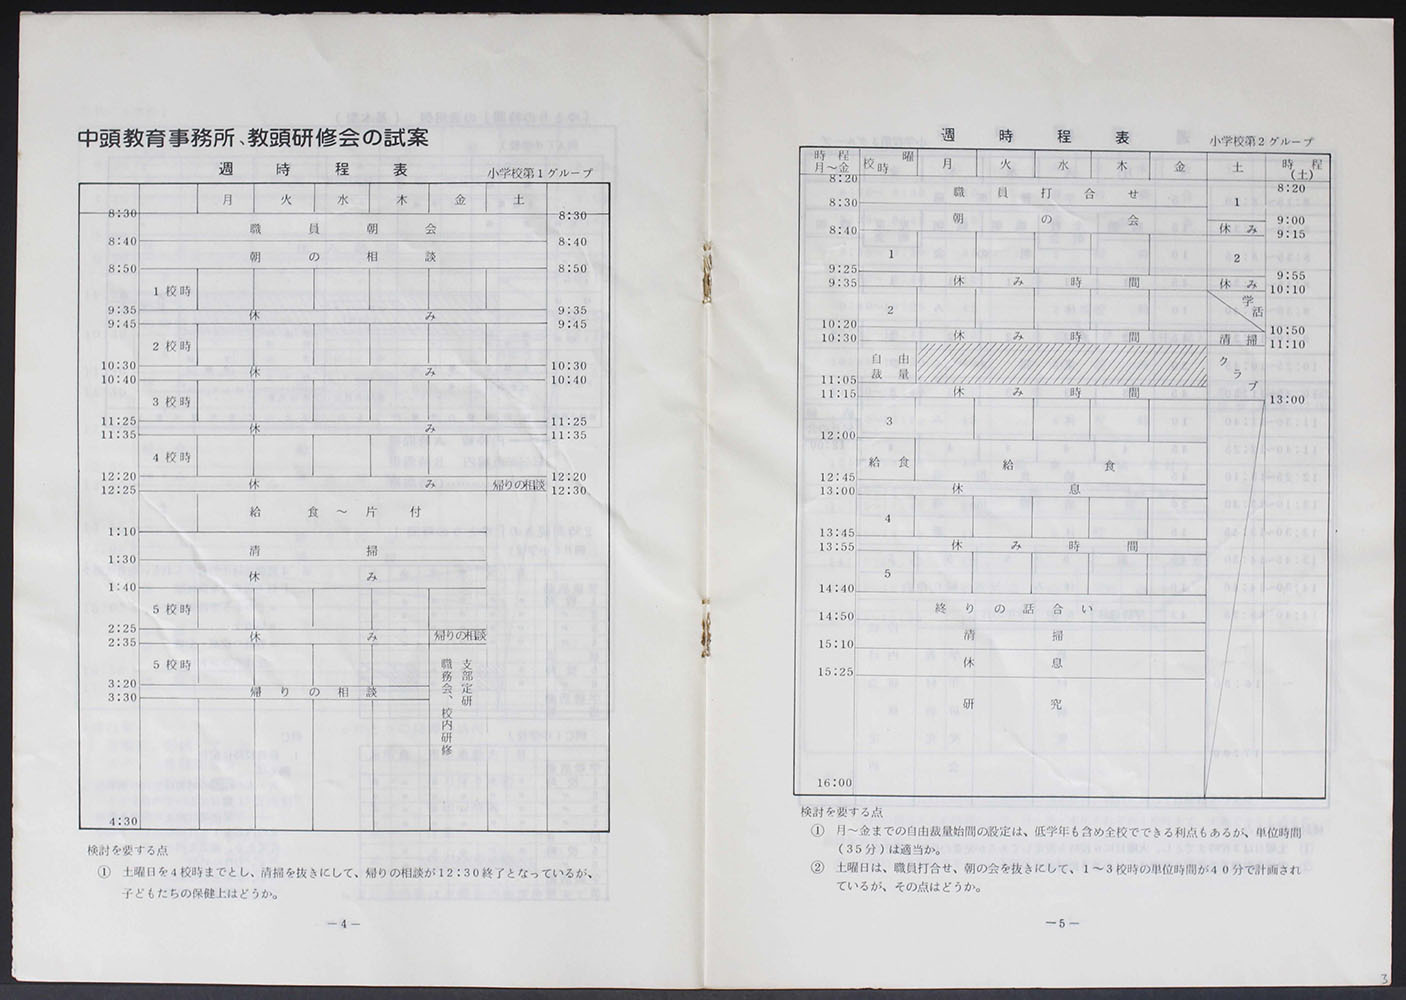 中頭教育事務所、教頭研修会の試案
週時程表 小学校第1グループ
月 火 水 木 金 土
8:30 8:30
職員朝会
8:40 8:40
朝の相談
8:50 8:50
1校時
9:35 休み 9:35
9:45 9:45
2校時
10:30 休み 10:30
10:40 10:40
3校時
11:25 休み 11:25
11:35 11:35
4校時
12:20 休み 帰りの相談 12:20
12:25 12:30
給食～片付
1:10
清掃
1:30
休み
1:40
5校時
2:25 休み 帰りの相談
2:35
5校時
支部定研
職務会、校内研修
3:20 帰りの相談
3:30
4:30
検討を要する点
① 土曜日を4校時までとし、清掃を抜きにして、帰りの相談が12:30終了となっているが、
子どもたちの保健上はどうか。
－4－
週時程表 小学校第2グループ
時程 月～金 曜 校時 月 火 水 木 金 土 時程(土)
8:20 職員打合せ 1 8:20
8:30 朝の会 9:00
8:40 休み 9:15
1 2
9:25 休み時間 休み 9:55
9:35 10:10
2 学活
10:20 休み時間 清掃 10:50
10:30 11:10
自由裁量 クラブ
11:05 休み時間
11:15 13:00
3
12:00
給食 給食
12:45 休息
13:00
4
13:45 休み時間
13:55
5
14:40
終りの話合い
14:50
清掃
15:10
休息
15:25
研究
16:00
検討を要する点
① 月～金までの自由裁量始間の設定は、低学年も含め全校でできる利点もあるが、単位時間
(35分)は適当か。
② 土曜日は、職員打合せ、朝の会を抜きにして、1～3校時の単位時間が40分で計画され
ているが、その点はどうか。
－5－
3